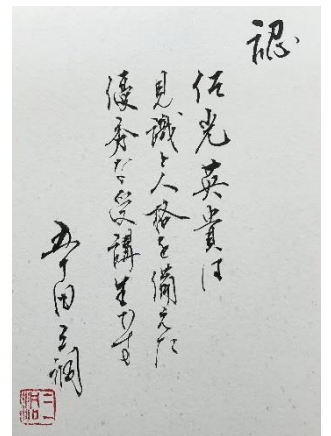 認
伍光英貴は
見識と人格を備えた
優秀な受講生です
五十田